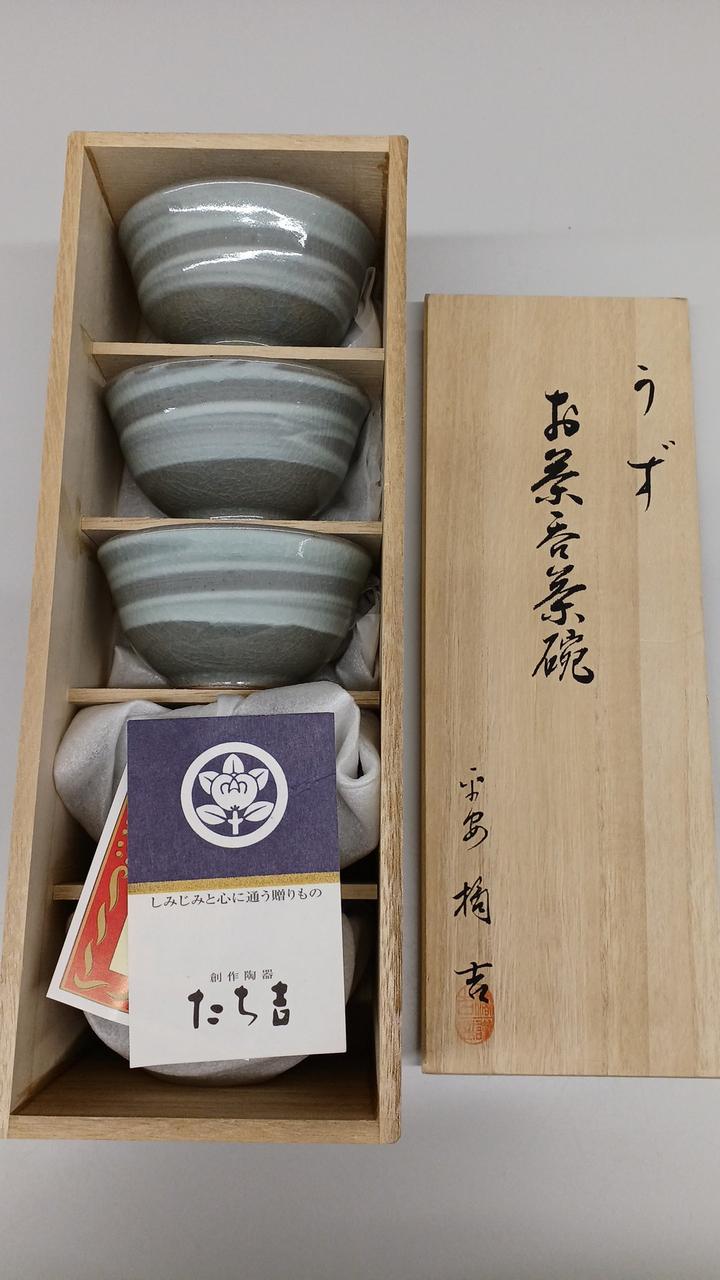 うず
お茶呑茶碗
平安 橘吉
しみじみと心に通う贈りもの
創作陶器
たち吉